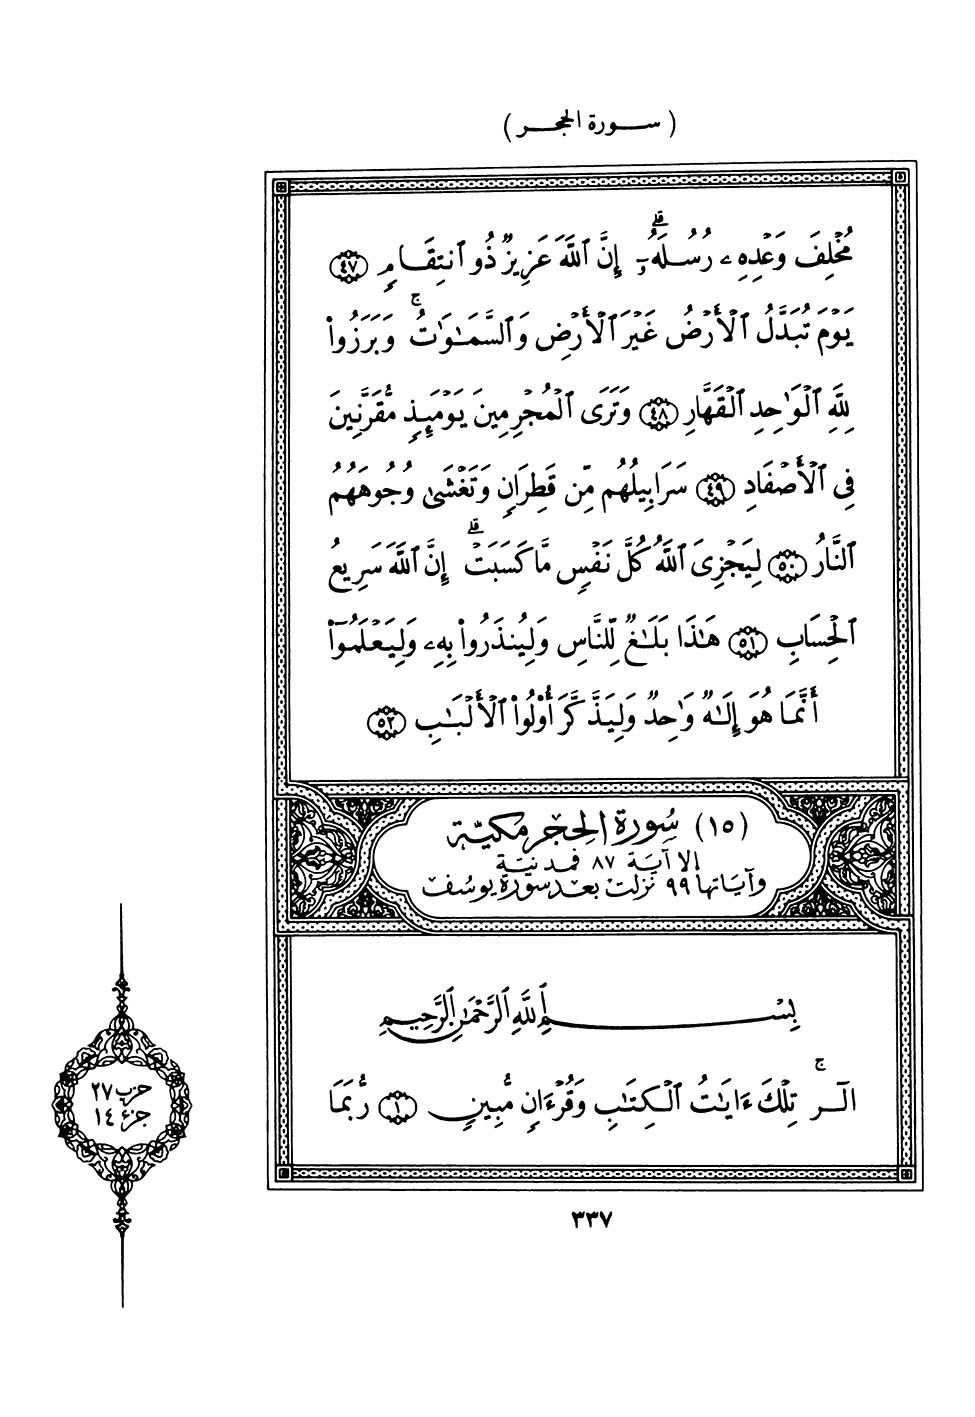 ( سورة الحجر )
مُخْلِفَ وَعْدِهِۦ رُسُلَهُۥٓ ۗ إِنَّ ٱللَّهَ عَزِيزٌ ذُو ٱنتِقَامٍ ٤٧
يَوْمَ تُبَدَّلُ ٱلْأَرْضُ غَيْرَ ٱلْأَرْضِ وَٱلسَّمَٰوَٰتُ ۚ وَبَرَزُوا۟
لِلَّهِ ٱلْوَٰحِدِ ٱلْقَهَّارِ ٤٨ وَتَرَى ٱلْمُجْرِمِينَ يَوْمَئِذٍ مُّقَرَّنِينَ
فِى ٱلْأَصْفَادِ ٤٩ سَرَابِيلُهُم مِّن قَطِرَانٍ وَتَغْشَىٰ وُجُوهَهُمُ
ٱلنَّارُ ٥٠ لِيَجْزِىَ ٱللَّهُ كُلَّ نَفْسٍ مَّا كَسَبَتْ ۗ إِنَّ ٱللَّهَ سَرِيعُ
ٱلْحِسَابِ ٥١ هَٰذَا بَلَٰغٌ لِّلنَّاسِ وَلِيُنذَرُوا۟ بِهِۦ وَلِيَعْلَمُوٓا۟
أَنَّمَا هُوَ إِلَٰهٌ وَٰحِدٌ وَلِيَذَّكَّرَ أُو۟لُوا۟ ٱلْأَلْبَٰبِ ٥٢
(١٥) سُورة الحجر مكيّة
إلا آية ٨٧ فمدنية
وآياتها ٩٩ نزلت بعد سورة يوسف
بِسْمِ ٱللَّهِ ٱلرَّحْمَٰنِ ٱلرَّحِيمِ
الٓر ۚ تِلْكَ ءَايَٰتُ ٱلْكِتَٰبِ وَقُرْءَانٍ مُّبِينٍ ١ رُّبَمَا
حزب ٢٧
جزء ١٤
٣٣٧